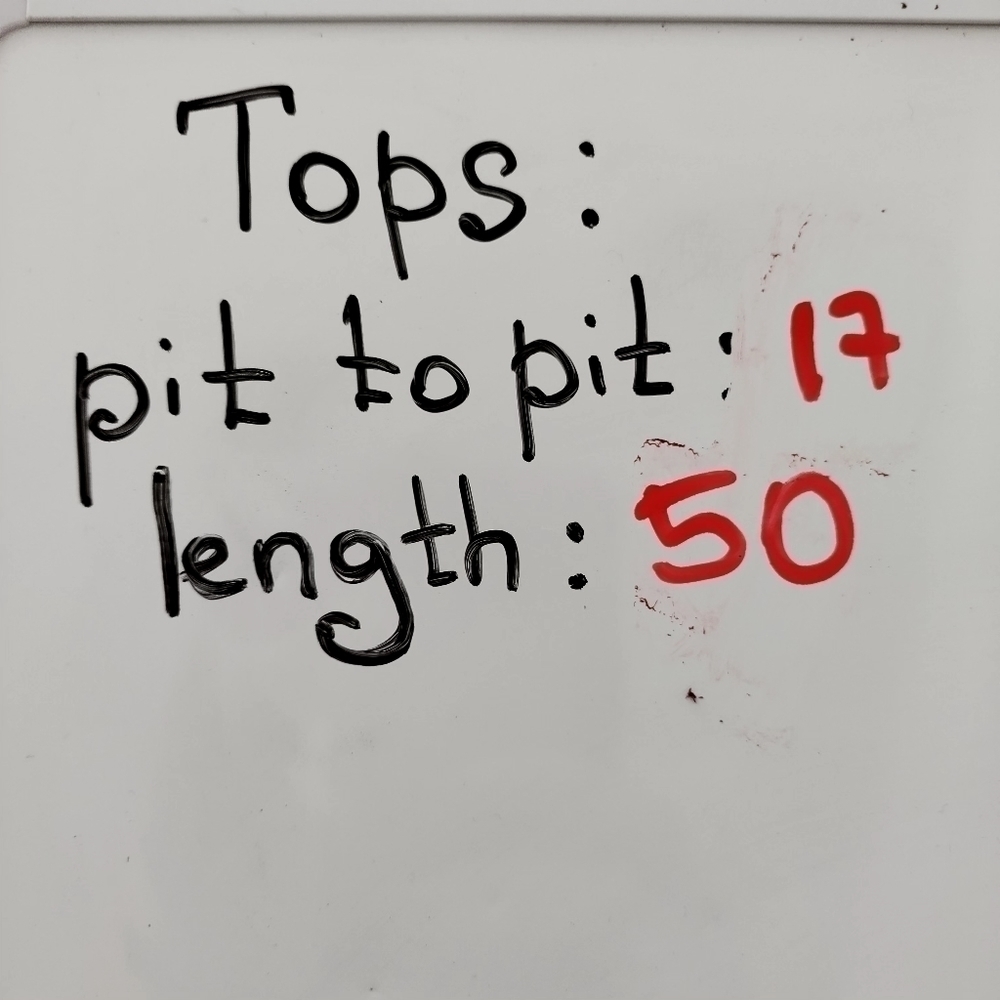 Tops:
pit to pit: 17
length: 50